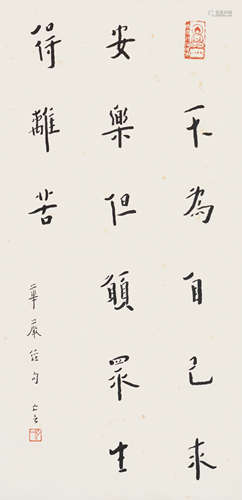 不為自己求
安樂但願眾生
得離苦
華嚴經句